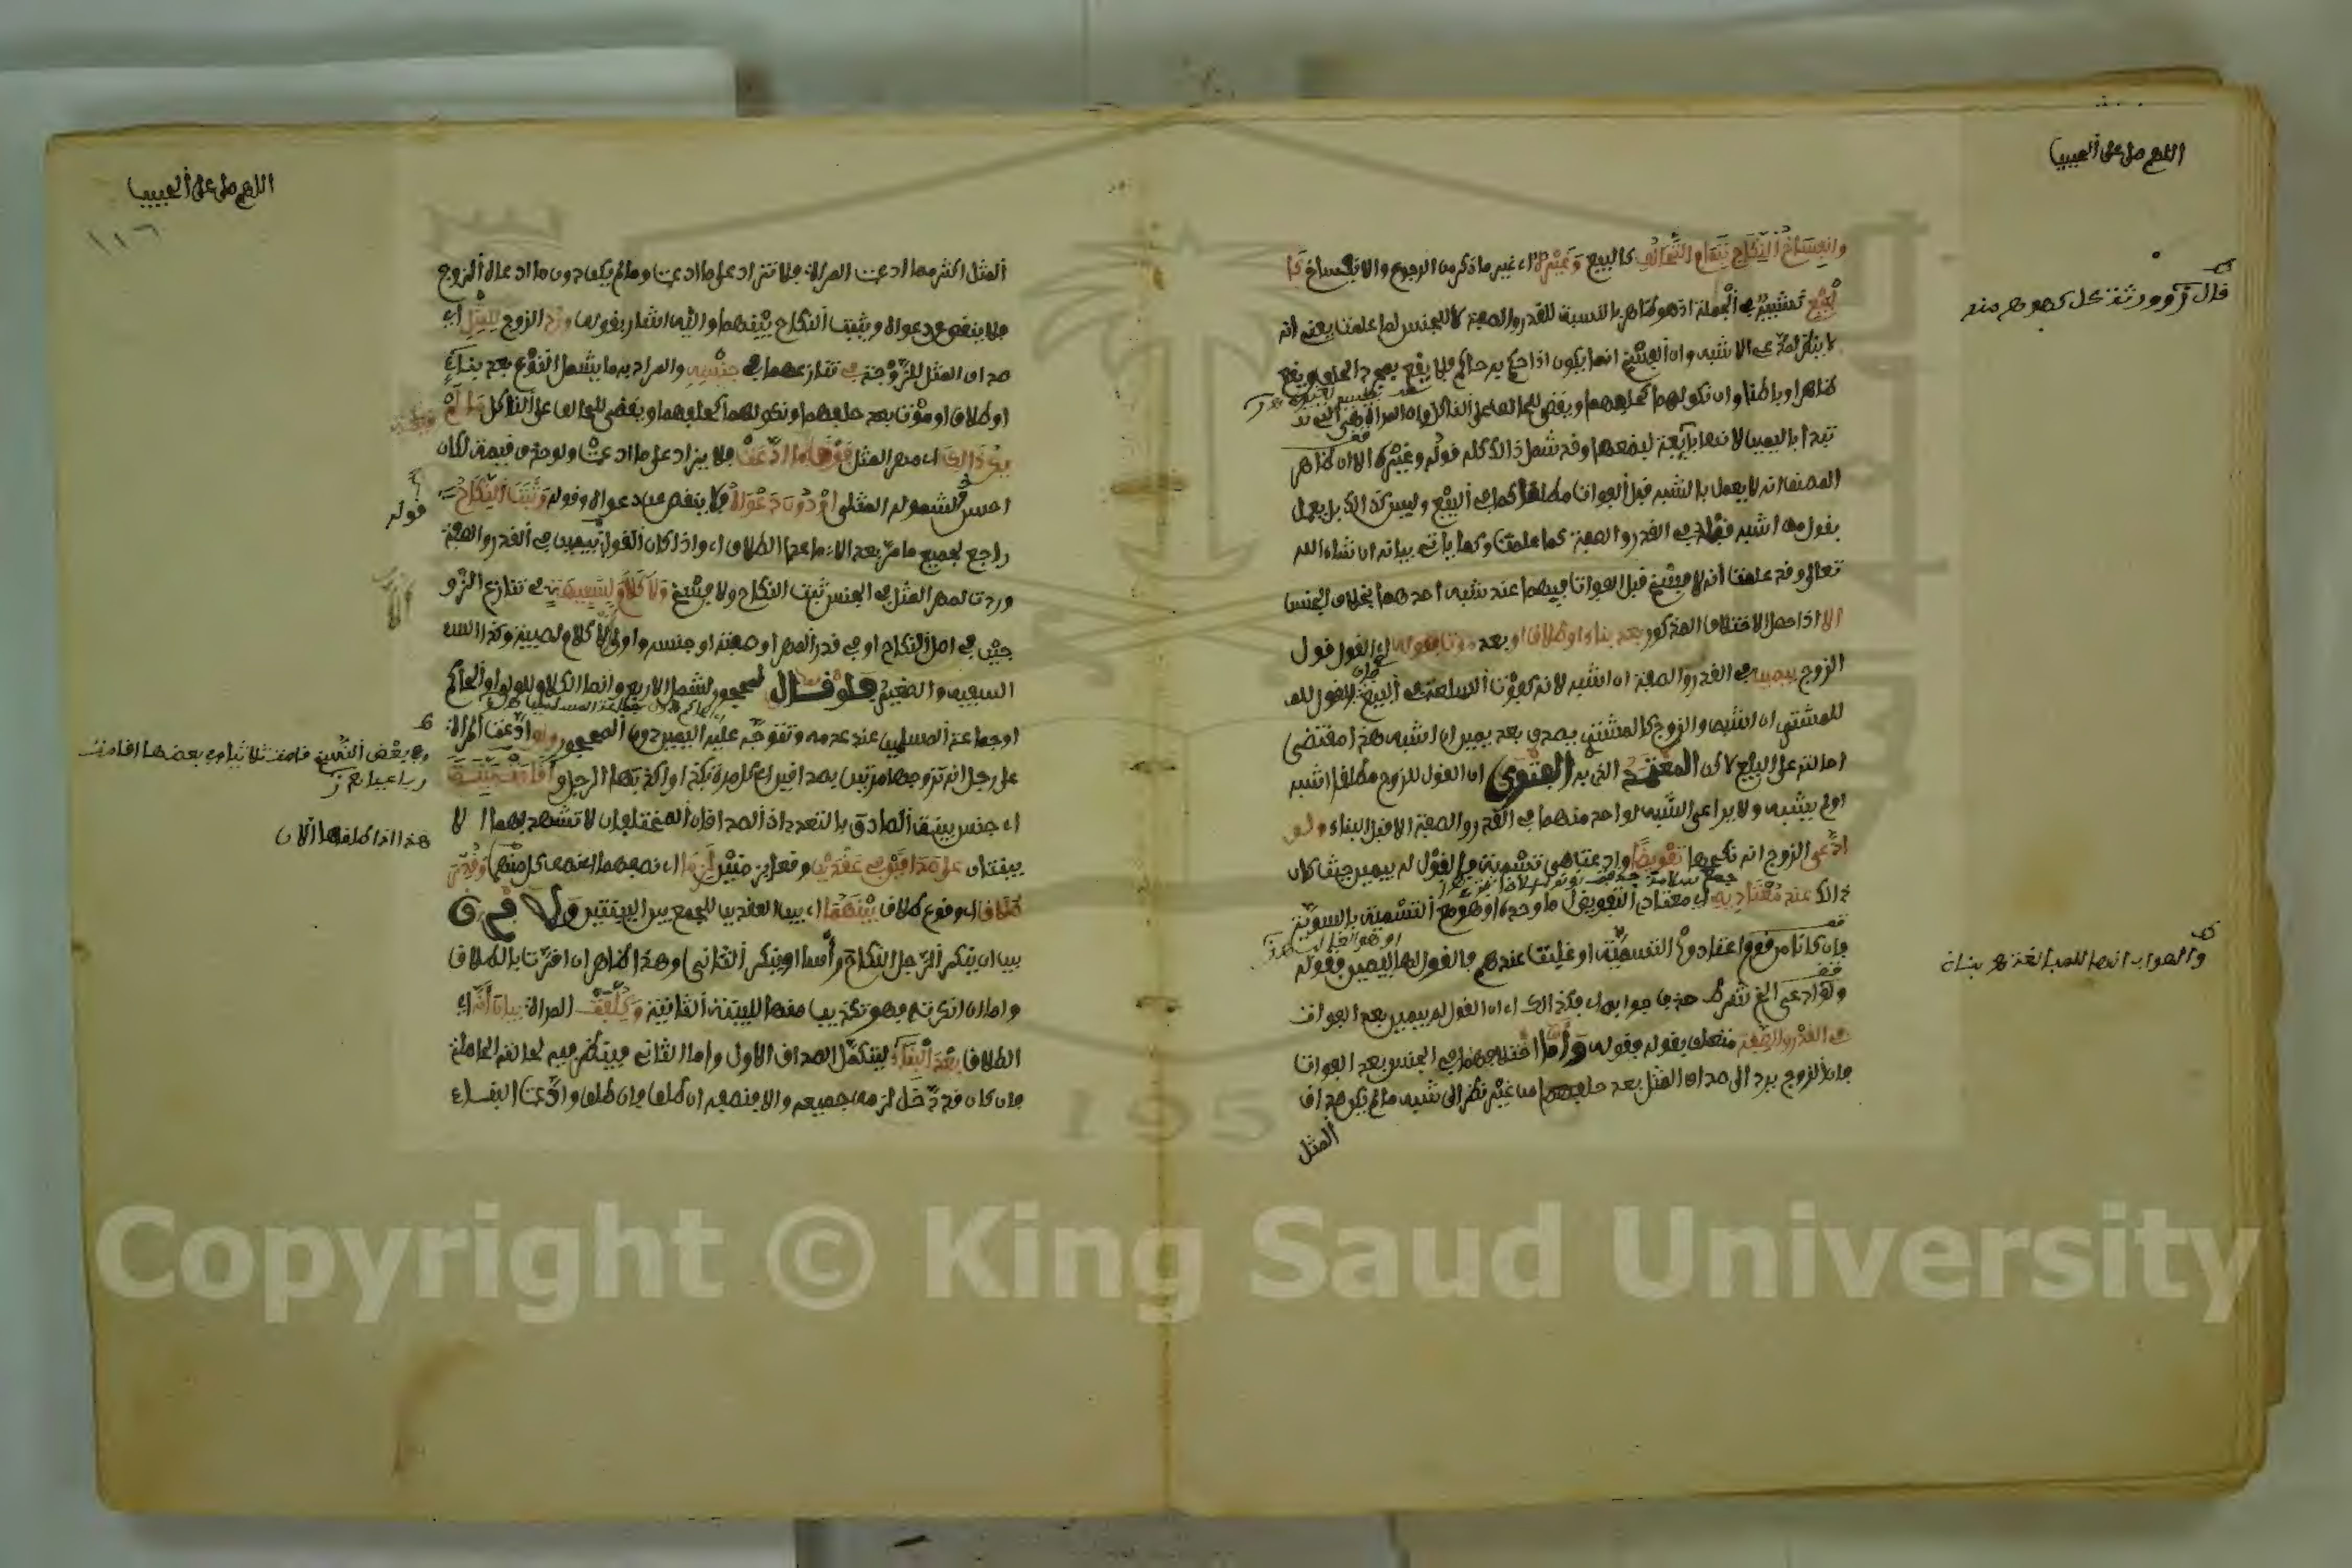 اللهم صل على الحبيب
وانفساخ النكاح بتمام التحالف كالبيع وغيره اي غير ماذكر من الرجوع والانفساخ كا
لبيع تشبيه في الجملة اذ هو ظاهر بالنسبة للقدر والصفة لا للجنس لما علمت يعني انه
لا ينظر لمدعي الاشبه وان الفسخ انما يكون اذا حكم به حاكم فلا يقع بمجرد الحلف ويقع
ظاهرا وباطنا وان نكولهما كحلفهما ويقضى للحالف على الناكل وان المراة هي التي
تبدا باليمين لانها بايعة لبضعها وقد شمل ذالك كله قوله وغيره الا ان ظاهر
المصنف انه لا يعمل بالشبه قبل الفوات مطلقا كما في البيع وليس كذالك بل يعمل
بقول من اشبه في القدر والصفة كما علمت وكما ياتي بيانه ان شاء الله
تعالى وقد علمت انه لا فسخ قبل الفوات فيهما عند شبه احدهما بخلاف الجنس
الا اذا حصل الاختلاف المذكور بعد بناء او طلاق او بعد موت فقوله اي القول قول
الزوج بيمينه في القدر والصفة ان اشبه لانه كفوت السلعة في البيع فالقول
للمشتري ان اشبه والزوج كالمشتري يصدق بعد يمين ان اشبه هذا مقتضى
احالته على البيع لاكن المعتمد الذي به الفتوى ان القول للزوج مطلقا اشبه
اولم يشبه ولا يراعى الشبه لواحد منهما في القدر والصفة الا قبل البناء ولو
ادعى الزوج انه نكحها تفويضا وادعت هي تسمية فالقول له بيمين حيث كان
ذالك عند معتاديه اي معتادي التفويض اما وحده او هو مع التسمية بالسوية
فان كانا من قوم اعتادوا التسمية او غلبت عندهم فالقول لها بيمين فقوله
ولو ادعى الخ شرط حذف جوابه اي فكذالك اي ان القول له بيمين بعد الفوات
في القدر والصفة متعلق بقوله فقوله واما اختلافهما في الجنس بعد الفوات
فان الزوج يرد الى صداق المثل بعد حلفهما من غير نظر الى شبه مالم يكن صداق
المثل
والصواب انها للمبالغة
اللهم صل على الحبيب
١١٦
المثل اكثر مما ادعت المراة فلا تزاد على ما ادعت ومالم يكن دون ما ادعاه الزوج
فلا ينقص عن دعواه ويثبت النكاح بينهما والى هذا اشار بقوله ورد الزوج للمثل اي
صداق المثل للزوجة في تنازعهما في جنسه والمراد به ما يشمل النوع بعد بناء
او طلاق او موت بعد حلفهما ونكولهما كحلفهما ويقضى للحالف على الناكل مالم
يكن ذالك اي مهر المثل فوق ما ادعت فلا يزاد على ما ادعت ولو حذف قيمة لكان
احسن لشموله المثلي او دون دعواه فلا ينقص عن دعواه وقوله وثبت النكاح
راجع لجميع ما مر بعد الا ما عدا الطلاق اي واذا كان القول بيمين في القدر والصفة
وردت لمهر المثل في الجنس ثبت النكاح ولا فسخ ولا كلام لسفيهة في تنازع الزو
جين في اصل النكاح او في قدر المهر او صفته او جنسه واولى لا كلام لصبية وكذا
السفيه والصغير فلو قال لمحجور لشمل الاربع وانما الكلام للولي او الحاكم
او جماعة المسلمين عند عدمه وتتوجه عليه اليمين دون المحجور ولو ادعت المراة
على رجل انه تزوجها مرتين بصداقين كل مرة بكذا وكذبها الرجل واقامت بينة
اي جنس بينة الصادق بالتعدد اذ الصداقان المختلفان لا تشهد بهما الا
بينتان على صداقين في عقدين وقع في زمنين لزما اي نصفهما النصف كل منهما وقدر
طلاق اي وقوع طلاق بينهما اي بين العقدين للجمع بين البينتين ولا فرق
بين ان ينكر الرجل النكاح راسا او ينكر الثاني وهذا ظاهر ان اقرت بالطلاق
واما ان انكرته فهو تكذيب منها للبينة الثانية وكلفت المراة بيان انه اي
الطلاق بعد البناء ليتكمل الصداق الاول واما الثاني فينظر فيه لحالته الحاصلة
فان كان قد دخل لزمه جميعه والا فنصفه ان طلق فان طلق وادعت البناء
قوله